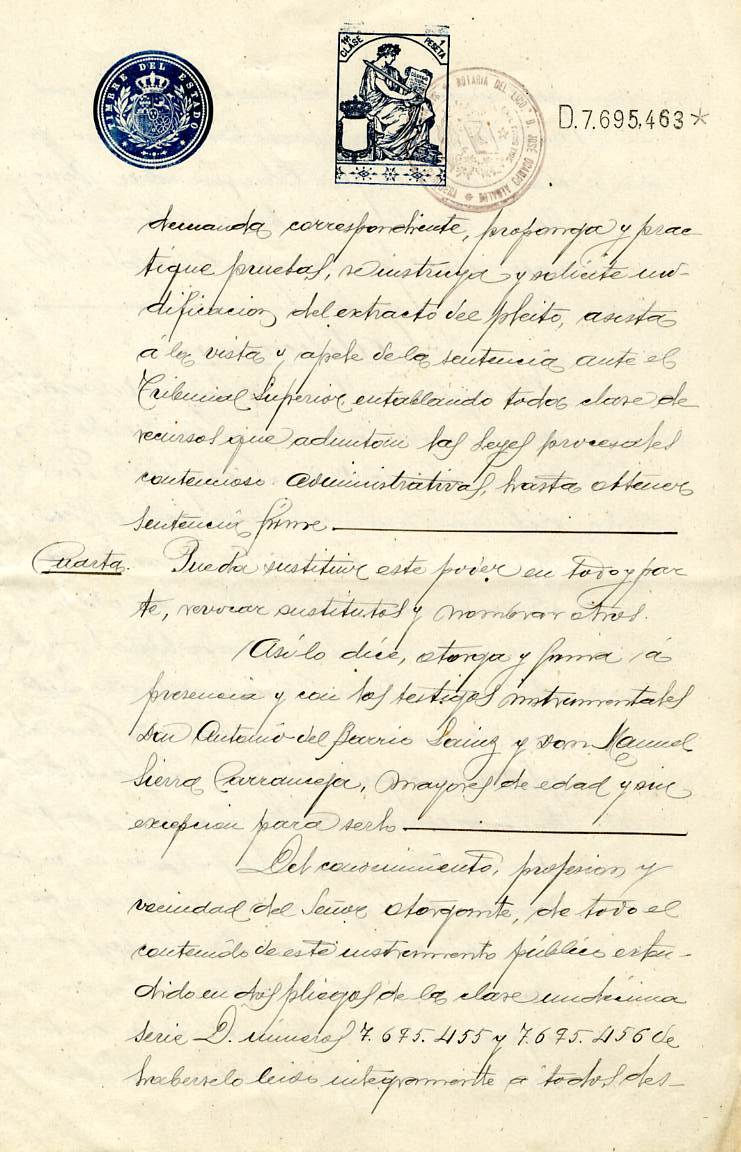 TIMBRE DEL ESTADO
11ª CLASE 1 PESETA
NOTARIA DEL LICDO D. JOSÉ
D.7.695,463*
demanda correspondiente, proponga y prac-
tique pruebas, se instruya y solicite mo-
dificacion del extracto del pleito, asista
á la vista y apele de la sentencia ante el
Tribunal Superior, entablando toda clase de
recursos que admitan las leyes procesales
contencioso-administrativas, hasta obtener
sentencia firme.
Cuarta. Pueda sustituir este poder en todo y par
te, revocar sustitutos y nombrar otros.
Así lo dice, otorga y firma á
presencia y con los testigos instrumentales
Don Antonio del Barrio Sainz y Don Manuel
Sierra Carranceja, mayores de edad y sin
excepcion para serlo
Del conocimiento, profesion y
vecindad del Señor otorgante, de todo el
contenido de este instrumento público exten-
dido en dos pliegos de la clase undécima
serie D. números 7.695.455 y 7.695.456 de
habérselo leido integramente a todos des-